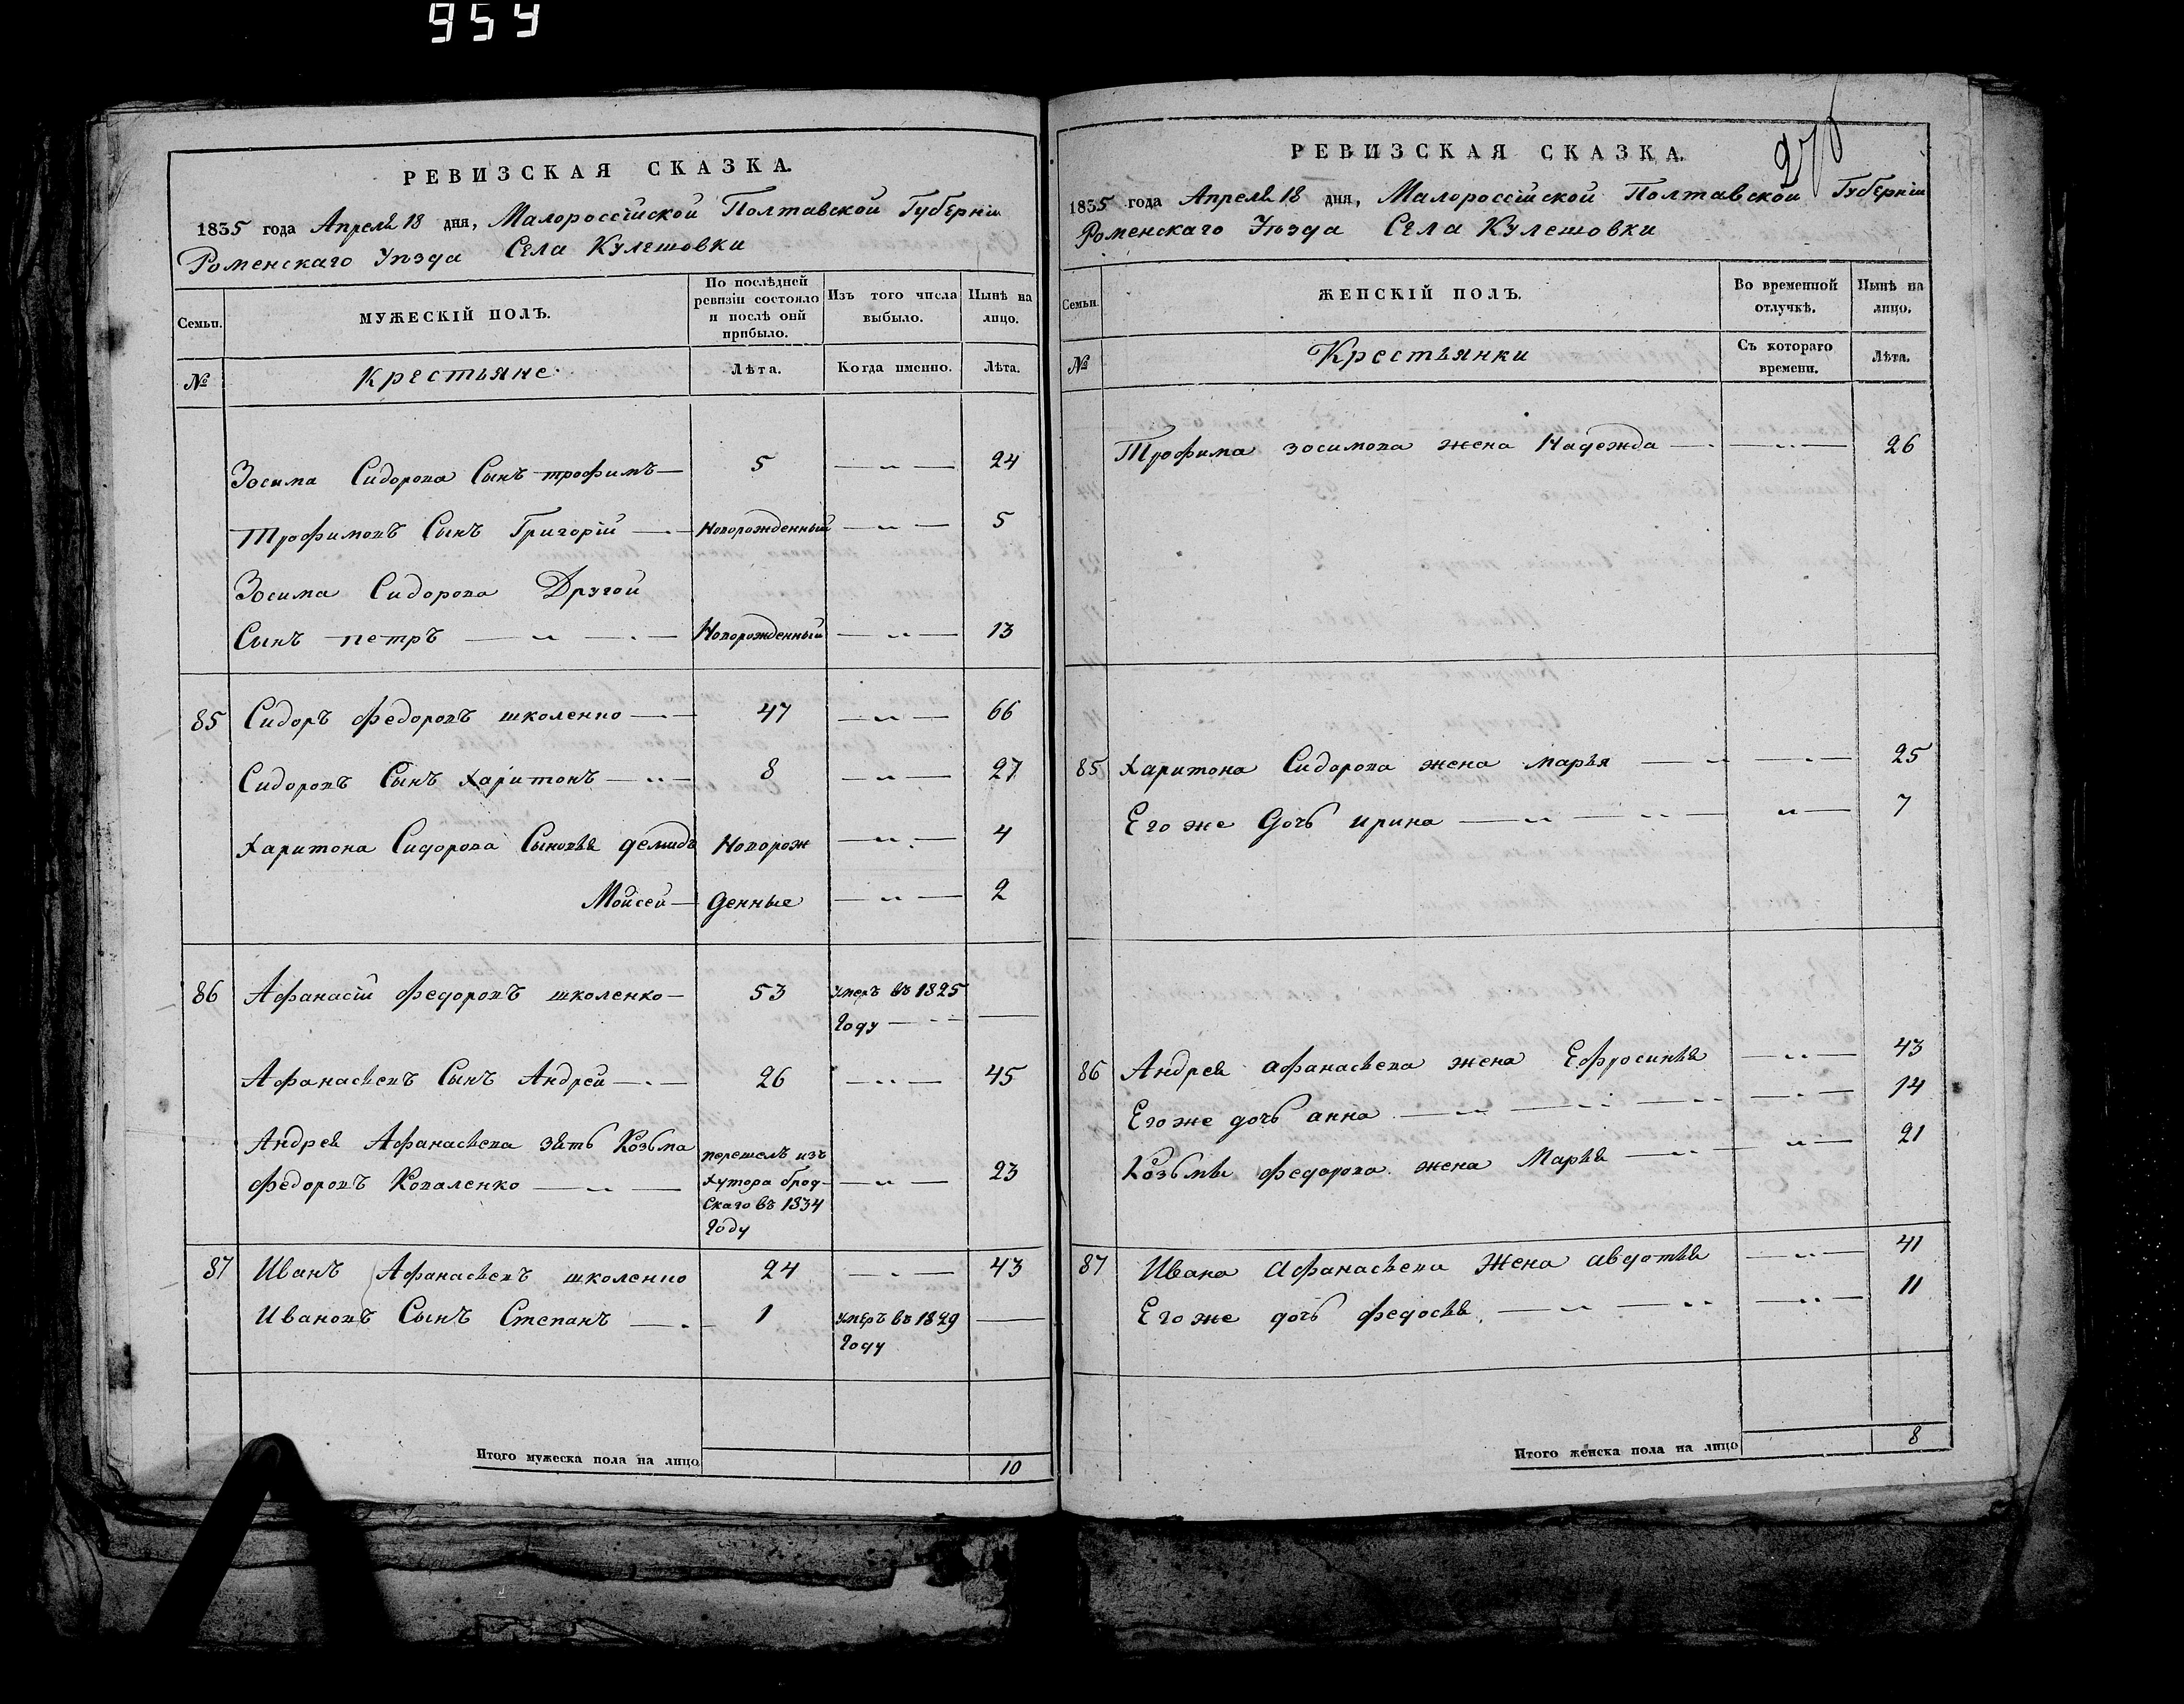 959
РЕВИЗСКАЯ СКАЗКА.
1835 года Апреля 18 дня, Малороссійской Полтавской Губерніи
Роменскаго Уѣзда Села Кулешовки
Семьи.
МУЖЕСКІЙ ПОЛЪ.
По послѣдней ревизіи состояло и послѣ оной прибыло.
Изъ того числа выбыло.
Нынѣ на лицо.
№
Крестьяне
Лѣта.
Когда именно.
Лѣта.
Зосима Сидорова Сынъ трофимъ 5 24
Трофимовъ Сынъ Григорій Новорожденный 5
Зосима Сидорова Другой
Сынъ петръ Новорожденный 13
85 Сидоръ федоровъ школенко 47 66
Сидоровъ Сынъ харитонъ 8 27
Харитона Сидорова Сыновья демидъ Новорож 4
Мойсей денные 2
86 Афанасій федоровъ школенко 53 умеръ въ 1825
Году
Афанасьевъ Сынъ Андрей 26 45
Андрея Афанасьева зять Козьма перешелъ изъ
федоровъ Коваленко хутора брод- 23
скаго въ 1834
Году
87 Иванъ Афанасьевъ школенко 24 43
Ивановъ Сынъ Степанъ 1 умеръ въ 1829
Году
Итого мужеска пола на лицо 10
РЕВИЗСКАЯ СКАЗКА.
1835 года Апреля 18 дня, Малороссійской Полтавской Губерніи
Роменскаго Уѣзда Села Кулешовки
Семьи.
ЖЕНСКІЙ ПОЛЪ.
Во временной отлучкѣ.
Нынѣ на лицо.
№
Крестьянки
Съ котораго времени.
Лѣта.
Трофима зосимова жена Надежда 26
85 Харитона Сидорова жена марья 25
Его же дочь ирина 7
86 Андрея афанасьева жена Ефросинья 43
Его же дочь анна 14
Козьмы федорова жена Марья 21
87 Ивана Афанасьева Жена авдотья 41
Его же дочь федосья 11
Итого женска пола на лицо 8